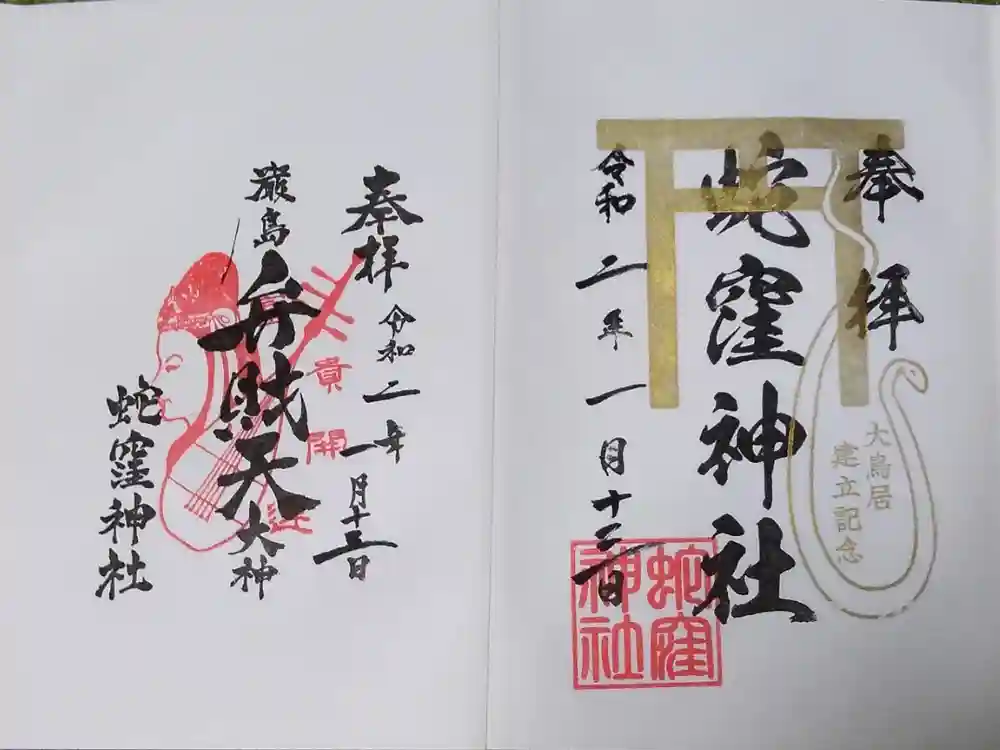 奉拝
蛇窪神社
令和二年一月十三日
大鳥居
建立記念
蛇窪
神社
奉拝
令和二年一月十三日
巌島
弁財天
大神
蛇窪神社
貴
開